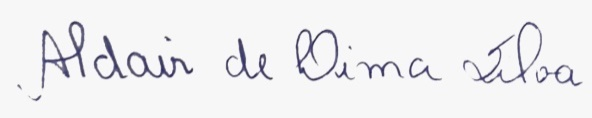 Aldair de Lima Silva